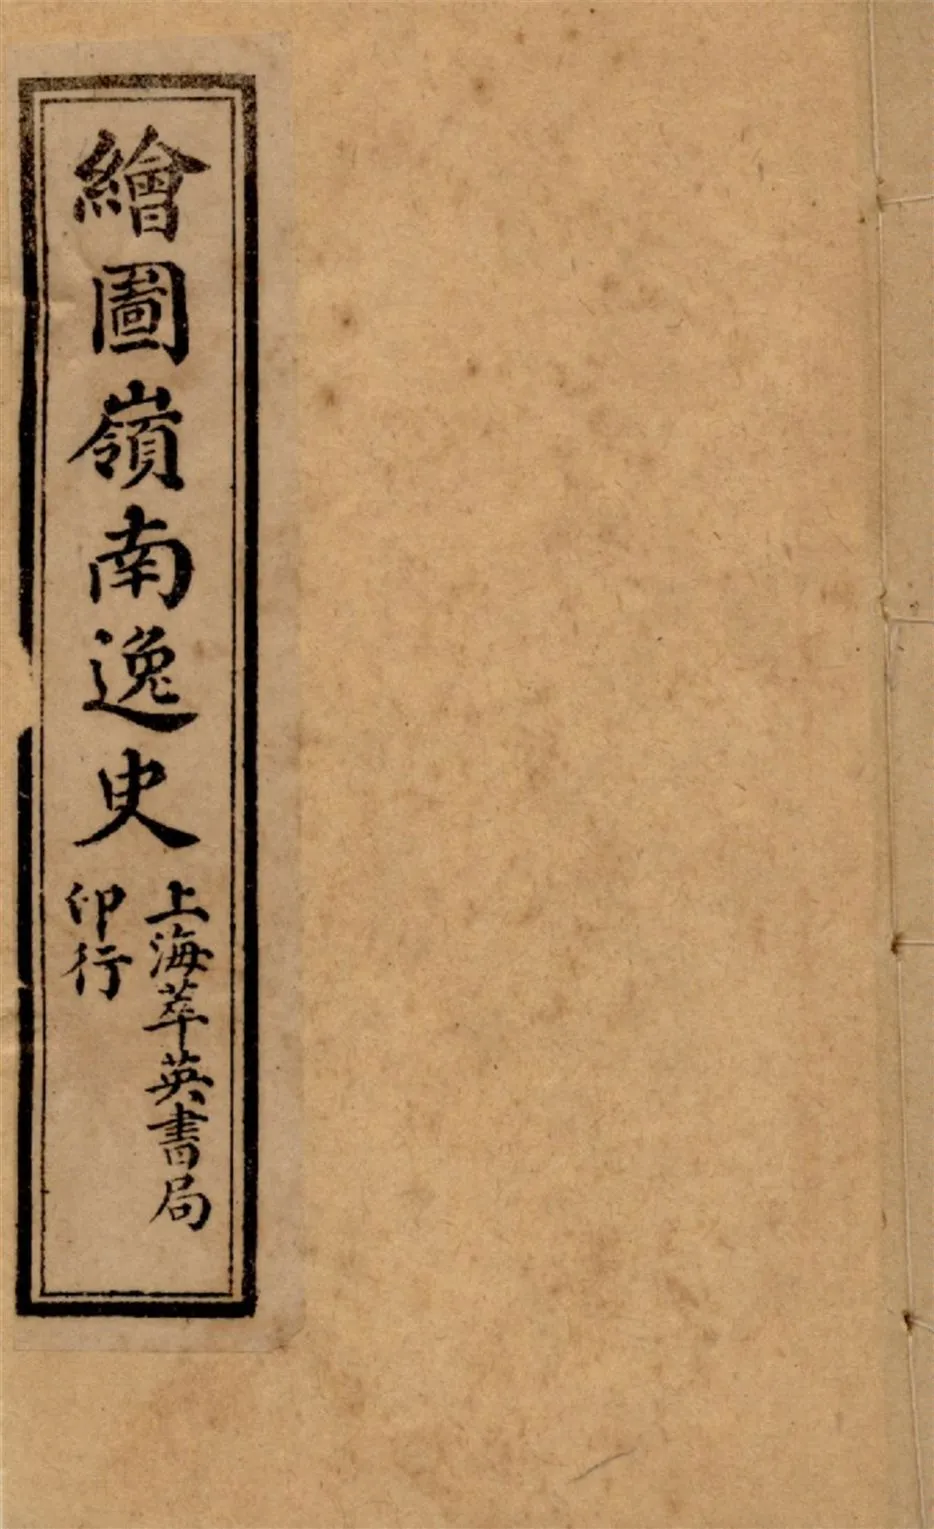 繪圖嶺南逸史
上海萃英書局
印行